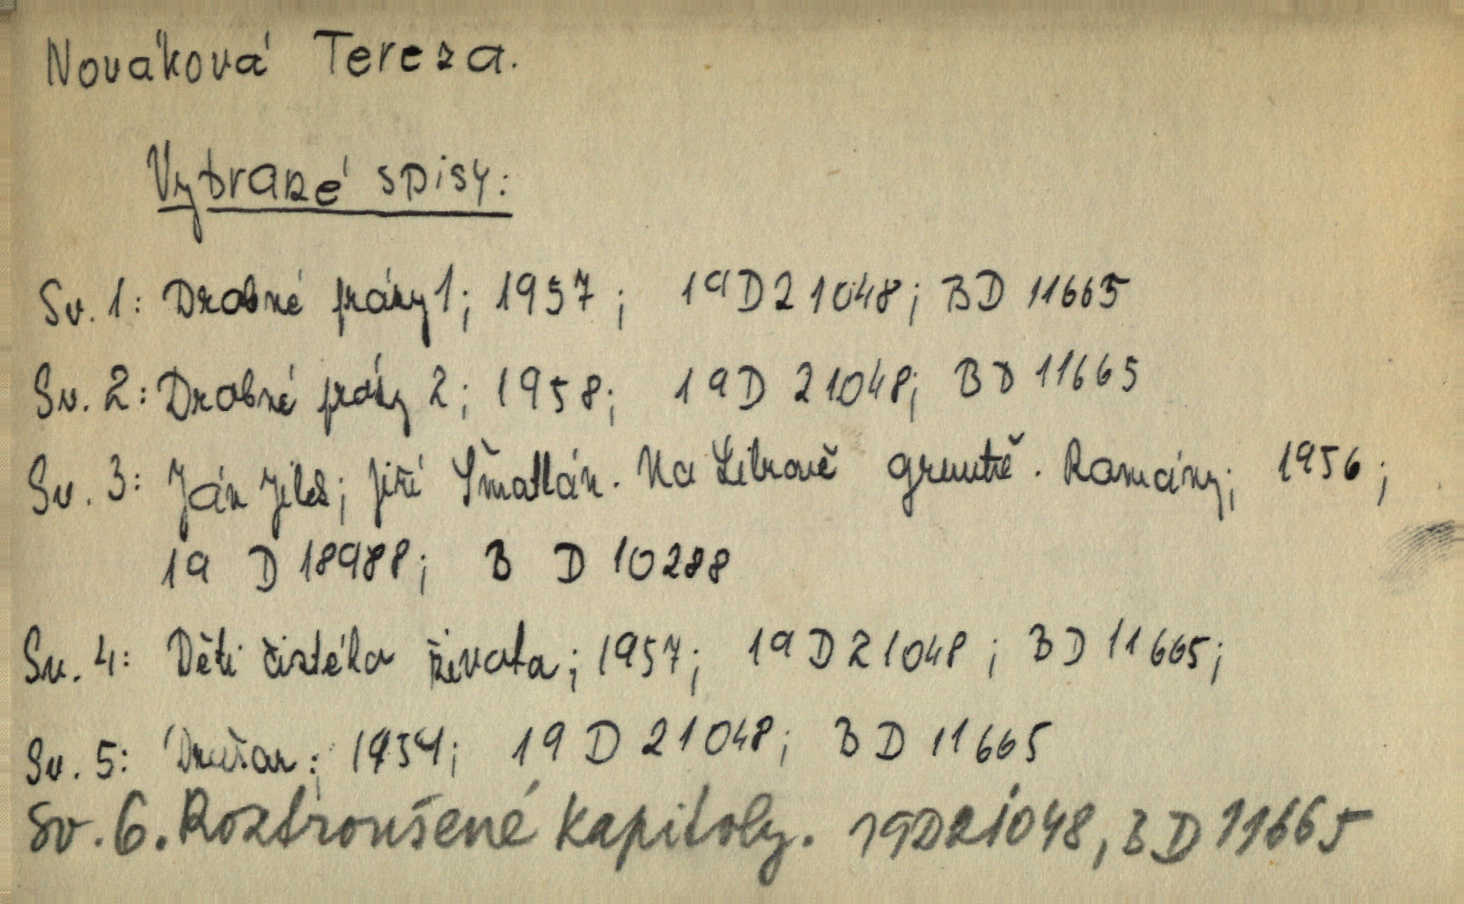 Nováková Tereza.
Vybrané spisy:
Sv. 1: Drobné prózy 1; 1957; 19 D 21048; BD 11665
Sv. 2: Drobné prózy 2; 1958; 19 D 21048; BD 11665
Sv. 3: Ján Jílek; Jiří Šmatlán. Na Librově gruntě. Romány; 1956;
19 D 18988; B D 10288
Sv. 4: Děti čistého života; 1957; 19 D 21048; BD 11665;
Sv. 5: Drašar; 19 D 21048; B D 11665
Sv. 6. Roztroušené kapitoly. 19D21048, BD 11665